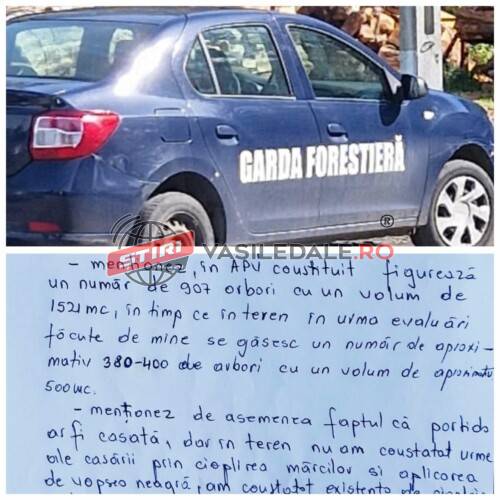 GARDA FORESTIERĂ
®
STIRI VASILEDALE.RO
- menționez, în APV coustituit figurează
un număr de 907 arbori cu un volum de
1521 mc, în timp ce în teren în urma evaluări
făcute de mine se găsesc un număr de aproxi-
mativ 380-400 de arbori cu un volum de aproximativ
500 mc.
- menționez de asemenea faptul că partida
ar fi casată, dar în teren nu am coustatat urme
ale casării prin cioplirea mărcilor și aplicarea
de vopsea neagră, am coustatat existența de